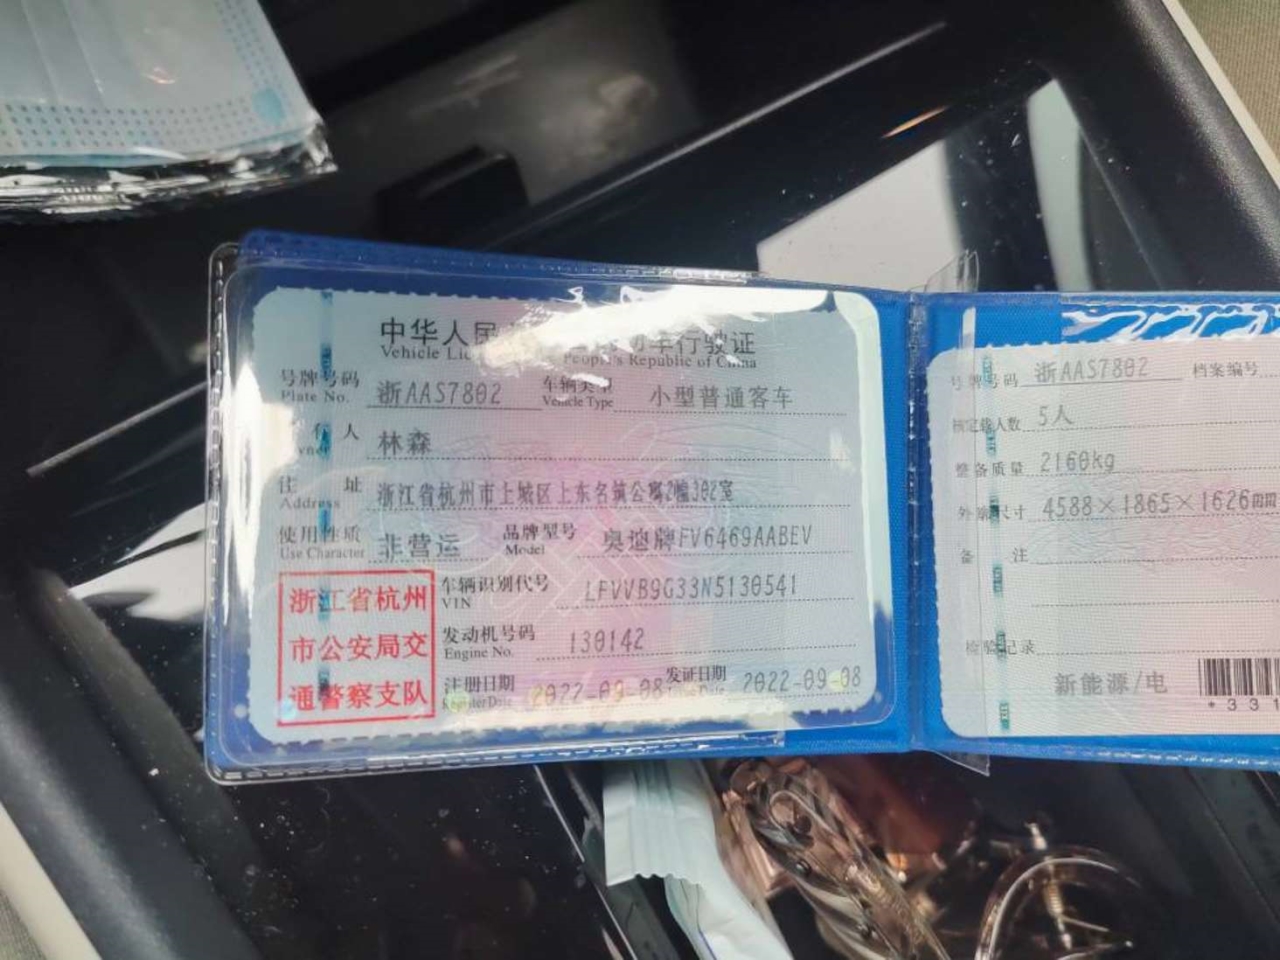 中华人民 动车行驶证
Vehicle Lic People's Republic of China
号牌号码 浙AAS7802 车辆类型 小型普通客车
Plate No. Vehicle Type
有 人 林森
wner
住 址 浙江省杭州市上城区上东名筑公寓2幢302室
Address
使用性质 非营运 品牌型号 奥迪牌FV6469AABEV
Use Character Model
浙江省杭州
市公安局交
通警察支队
车辆识别代号 LFVVB9G33N5130541
VIN
发动机号码 130142
Engine No.
注册日期 2022-09-08 发证日期 2022-09-08
Register Date Issue Date
号牌号码 浙AAS7802 档案编号
核定载人数 5人
整备质量 2160kg
外廓尺寸 4588×1865×1626mm
备 注
检验记录
新能源/电
*331